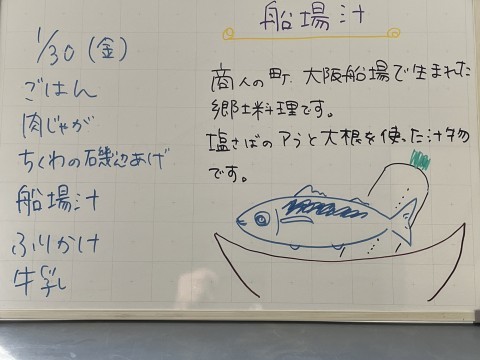 1/30(金)
ごはん
肉じゃが
ちくわの磯辺あげ
船場汁
ふりかけ
牛乳
船場汁
商人の町、大阪船場で生まれた
郷土料理です。
塩さばのアラと大根を使った汁物
です。